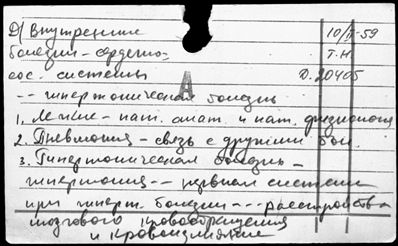 Д) Внутренние 10/IV-59
болезни - сердечно- Т.Н
сос. системы Д. 20405
А
-- гипертоническая болезнь
1. Легкие - пат. анат. и пат. физиология
2. Пневмония - связь с другими бол.
3. Гипертоническая болезнь -
гипертония -- нервная система
при гиперт. болезни --- расстройства
мозгового кровообращения
и кровоизлияние